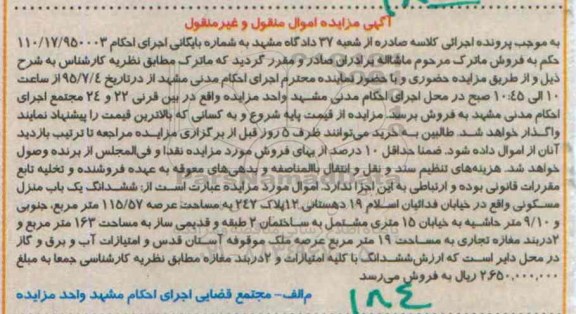 آگهی مزایده اموال منقول و غیرمنقول
به موجب پرونده اجرائی کلاسه صادره از شعبه ۳۷ دادگاه مشهد به شماره بایگانی اجرای احکام ۱۱۰/۱۷/۹۵۰۰۰۳
حکم به فروش ماترک مرحوم ماشااله برادران صادر و مقرر گردید که ماترک مطابق نظریه کارشناس به شرح
ذیل و از طریق مزایده حضوری و با حضور نماینده محترم اجرای احکام مدنی مشهد از درتاریخ ۹۵/۷/۴ از ساعت
۱۰ الی ۱۰:۴۵ صبح در محل اجرای احکام مدنی مشهد واحد مزایده واقع در بین قرنی ۲۲ و ۲۴ مجتمع اجرای
احکام مدنی مشهد به فروش برسد. مزایده از قیمت پایه شروع و به کسانی که بالاترین قیمت را پیشنهاد نمایند
واگذار خواهد شد. طالبین به خرید می‌توانند ظرف ۵ روز قبل از برگزاری مزایده مراجعه تا ترتیب بازدید
آنان از اموال داده شود. ضمنا حداقل ۱۰ درصد از بهای فروش مورد مزایده نقدا و فی‌المجلس از برنده وصول
خواهد شد. هزینه‌های تنظیم سند و نقل و انتقال بالمناصفه و بدهی‌های معوقه به عهده فروشنده و تخلیه تابع
مقررات قانونی بوده و ارتباطی به این اجرا ندارد. اموال مورد مزایده عبارت است از: ششدانگ یک باب منزل
مسکونی واقع در خیابان فدائیان اسلام ۱۹ دهستانی ۱۲پلاک ۲۴۷ به مساحت عرصه ۱۱۵/۵۷ متر مربع، جنوبی
و ۹/۱۰ متر حاشیه به خیابان ۱۵ متری مشتمل به ساختمان ۲ طبقه و قدیمی ساز به مساحت ۱۶۳ متر مربع و
۲دربند مغازه تجاری به مساحت ۱۹ متر مربع عرصه ملک موقوفه آستان قدس و امتیازات آب و برق و گاز
در محل دایر است که ارزش ششدانگ با کلیه امتیازات و ۲دربند مغازه مطابق نظریه کارشناسی جمعا به مبلغ
۲،۶۵۰،۰۰۰،۰۰۰ ریال به فروش می‌رسد
م‌الف- مجتمع قضایی اجرای احکام مشهد واحد مزایده
۱۸۴